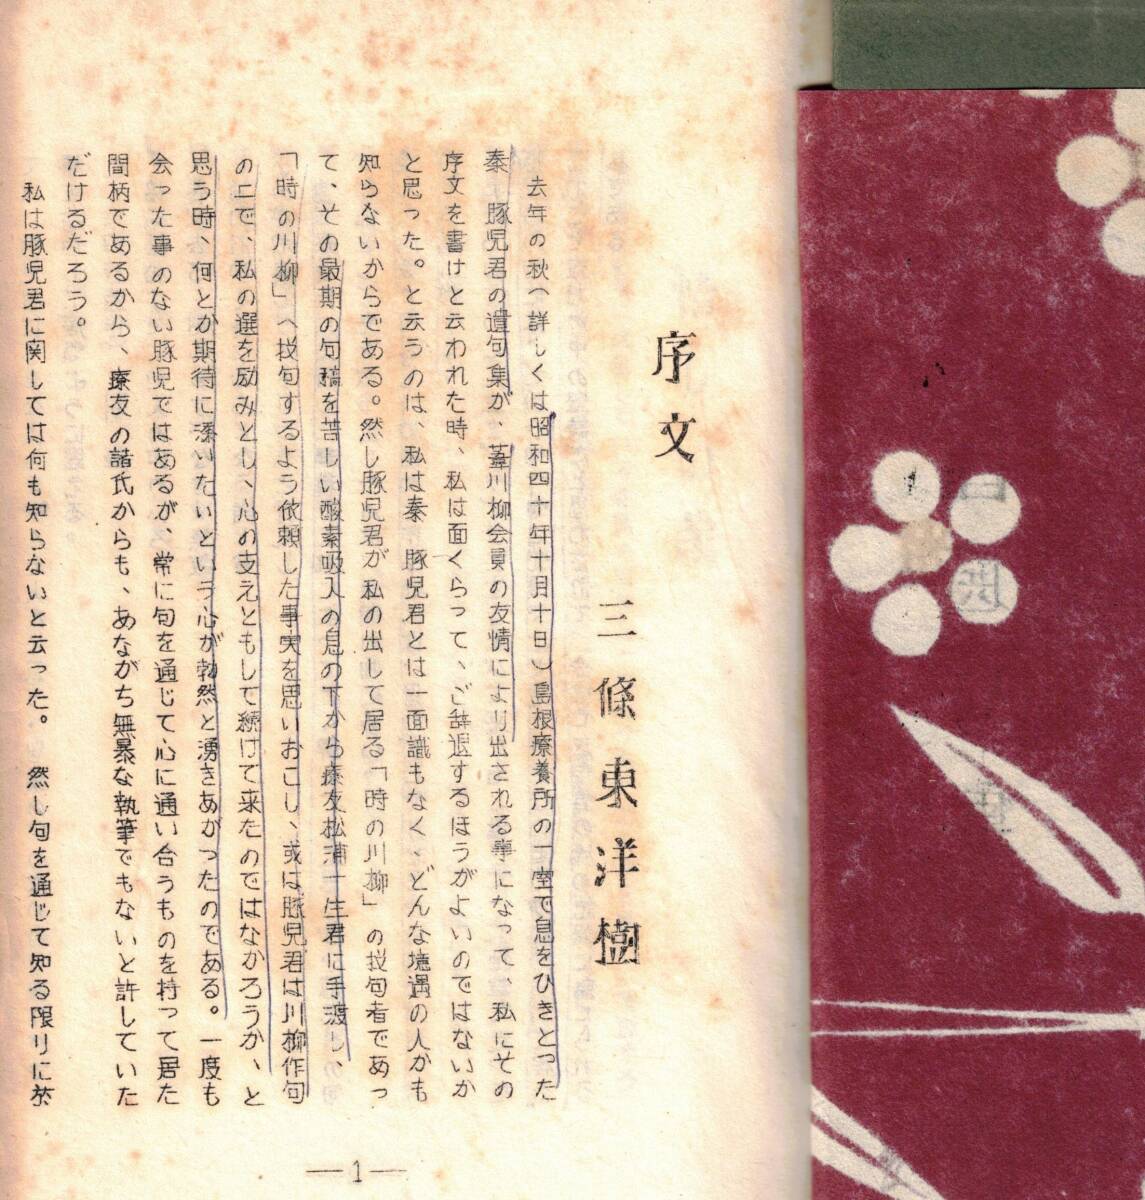 序文
三條東洋樹
去年の秋(詳しくは昭和四十年十月十日)島根療養所の一室で息をひきとった
秦 豚児君の遺句集が、葦川柳会員の友情により出される事になって、私にその
序文を書けと云われた時、私は面くらって、ご辞退するほうがよいのではないか
と思った。と云うのは、私は秦 豚児君とは一面識もなく、どんな境遇の人かも
知らないからである。然し豚児君が私の出して居る「時の川柳」の投句者であっ
て、その最期の句稿を苦しい酸素吸入の息の下から療友松浦一生君に手渡し
「時の川柳」へ投句するよう依頼した事実を思いおこし、或は豚児君は川柳作句
の上で、私の選を励みとし、心の支えともして続けて来たのではなかろうか、と
思う時、何とか期待に添いたいという心が勃然と湧きあがったのである。一度も
会った事のない豚児ではあるが、常に句を通じて心に通い合うものを持って居た
間柄であるから、療友の諸氏からも、あながち無暴な執筆でもないと許していた
だけるだろう。
私は豚児君に関しては何も知らないと云った。然し句を通じて知る限りに於
—1—